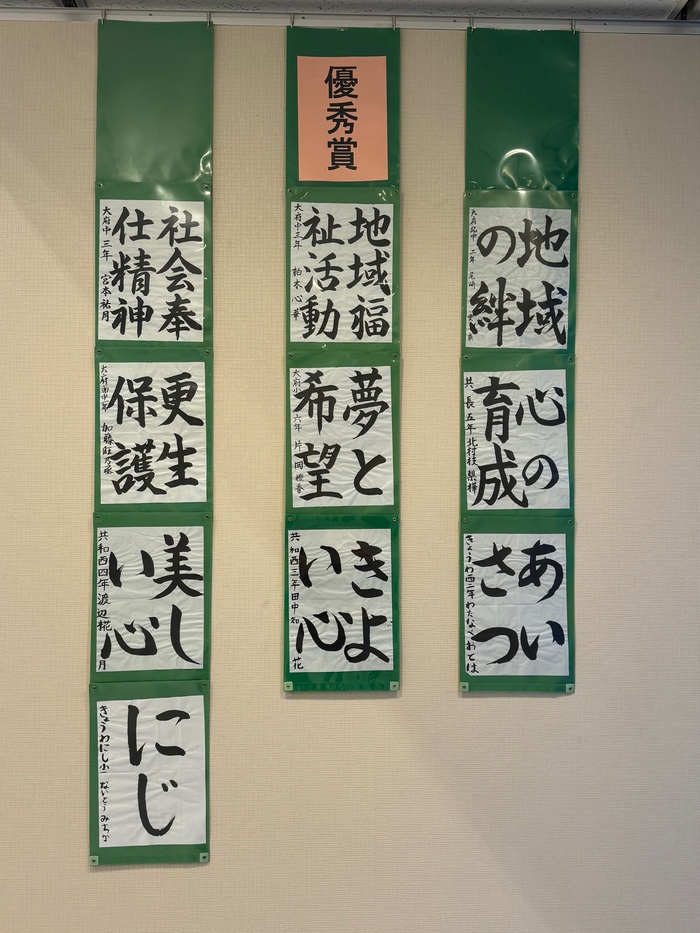 優秀賞
地域
の絆
心の
育成
共長五年
あい
さつ
きょうわ西二年わたなべおとは
地域福
祉活動
大府中三年 柏木心華
夢と
希望
大府小六年 片岡橙香
きよ
い心
共和西三年田中知花
社会奉
仕精神
大府中三年 宮本祐月
更生
保護
美し
い心
共和西四年渡辺椛月
にじ
きょうわにし小一 ないとうみちか